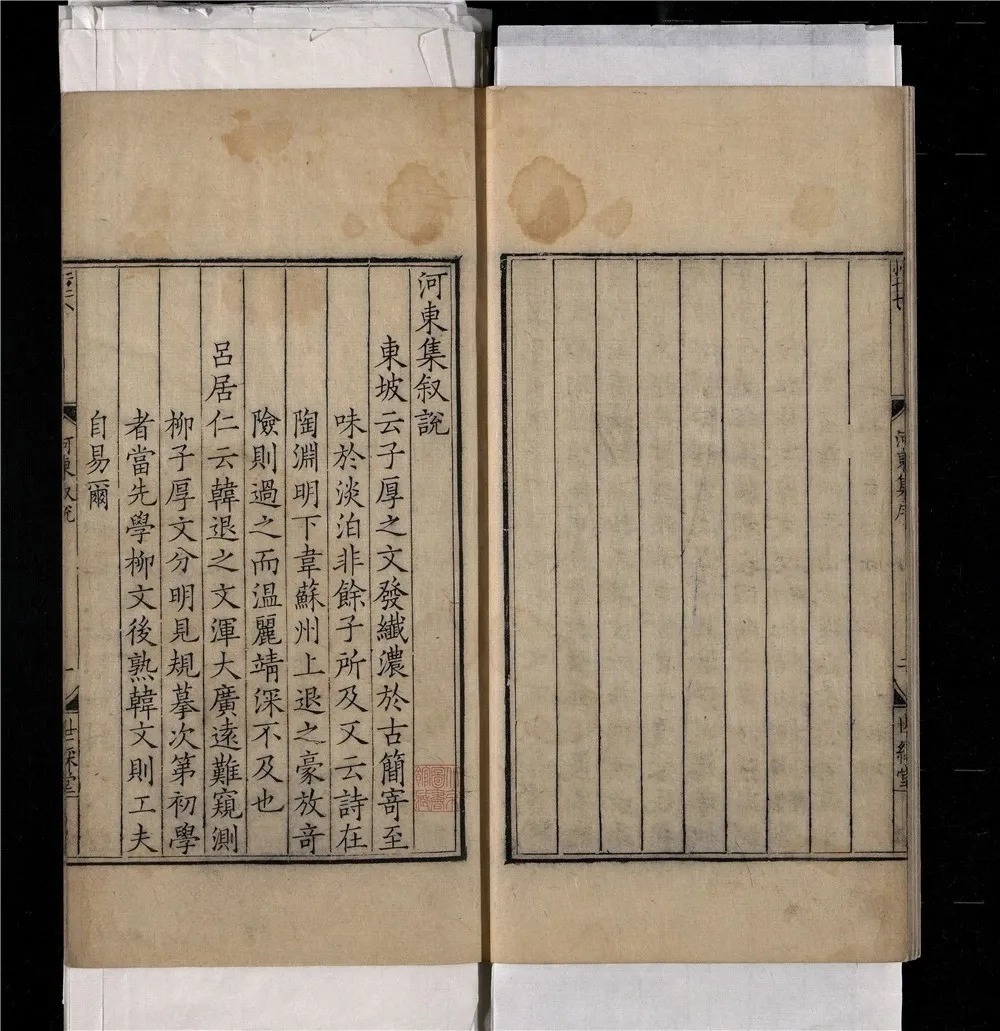 河東集叙說
東坡云子厚之文發纖濃於古簡寄至
味於淡泊非餘子所及又云詩在
陶淵明下韋蘇州上退之豪放竒
險則過之而温麗靖深不及也
呂居仁云韓退之文渾大廣遠難窺測
柳子厚文分明見規摹次第初學
者當先學柳文後熟韓文則工夫
自易爾
河東叙說
一
世綵堂
河東集序
世綵堂